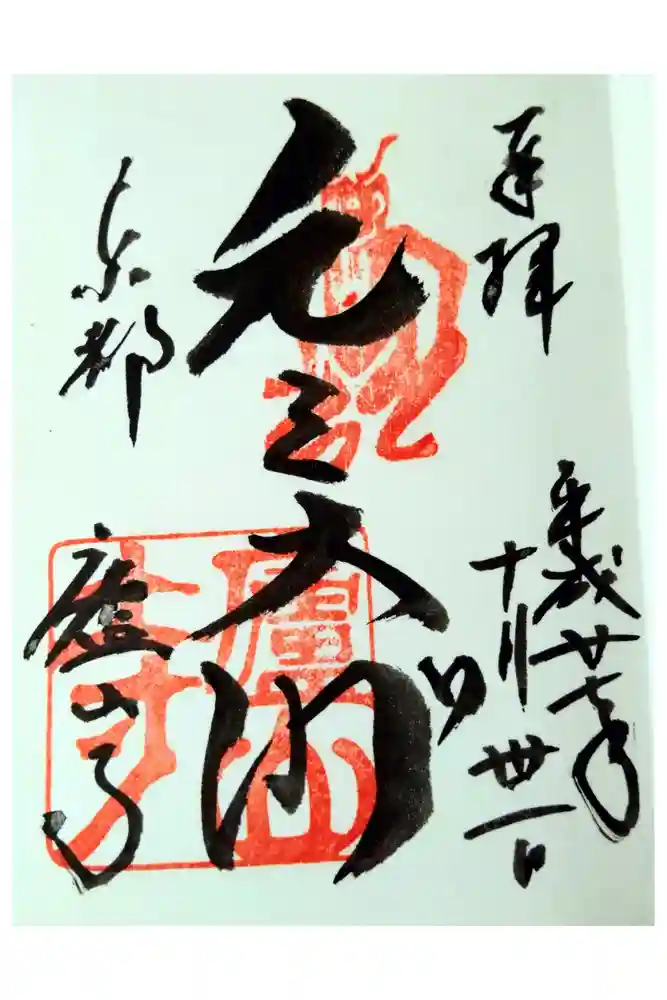 奉拝
平成廿七年
十月丗一日
元三大師
京都
廬山寺
廬山寺